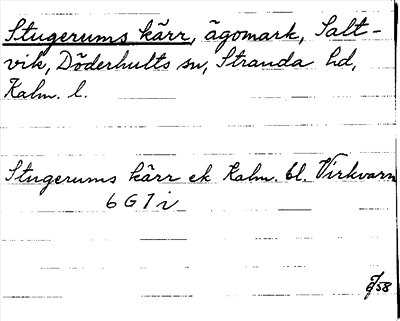 Stugerums kärr, ägomark, Salt-
vik, Döderhults sn, Stranda hd,
Kalm. l.
Stugerums kärr ek Kalm. bl. Virkvarn
6 G 7 i
58